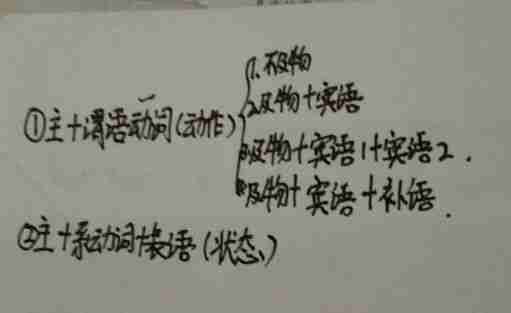 1.不及物
2.及物+宾语
①主+谓语动词(动作)
3.及物+宾语1+宾语2.
及物+宾语+补语.
②主+系动词+表语(状态)